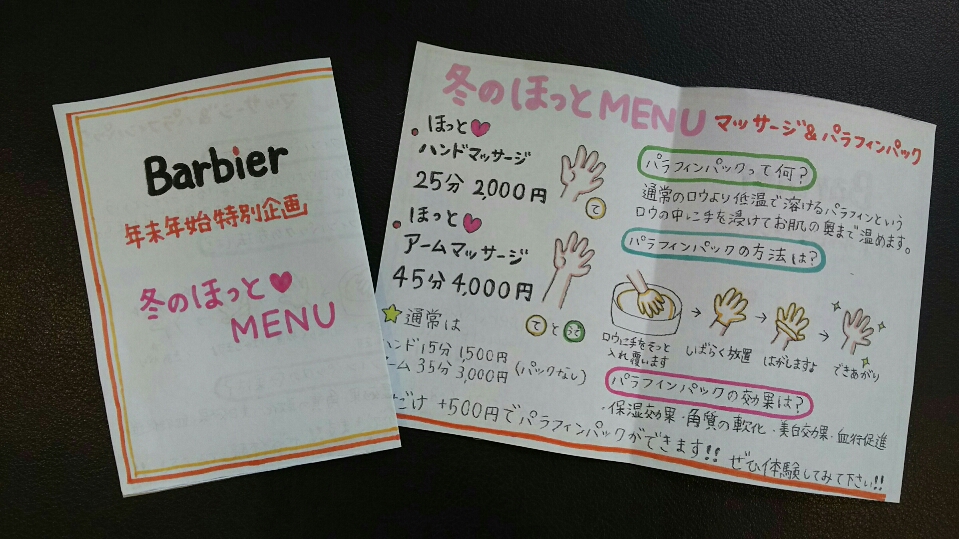 Barbier
年末年始特別企画
冬のほっと♥
MENU
冬のほっとMENU マッサージ&パラフィンパック
・ほっと♥
ハンドマッサージ
25分 2,000円
て
・ほっと♥
アームマッサージ
45分 4,000円
てとうで
☆通常は
ハンド15分 1,500円
ーム 35分 3,000円 (パックなし)
だけ +500円でパラフィンパックができます!! ぜひ体験してみて下さい!!
パラフィンパックって何?
通常のロウより低温で溶けるパラフィンという
ロウの中に手を浸けてお肌の奥まで温めます。
パラフィンパックの方法は?
ロウに手をそっと
入れ覆います
しばらく放置
はがしますよ
できあがり
パラフィンパックの効果は?
・保湿効果・角質の軟化・美白効果・血行促進